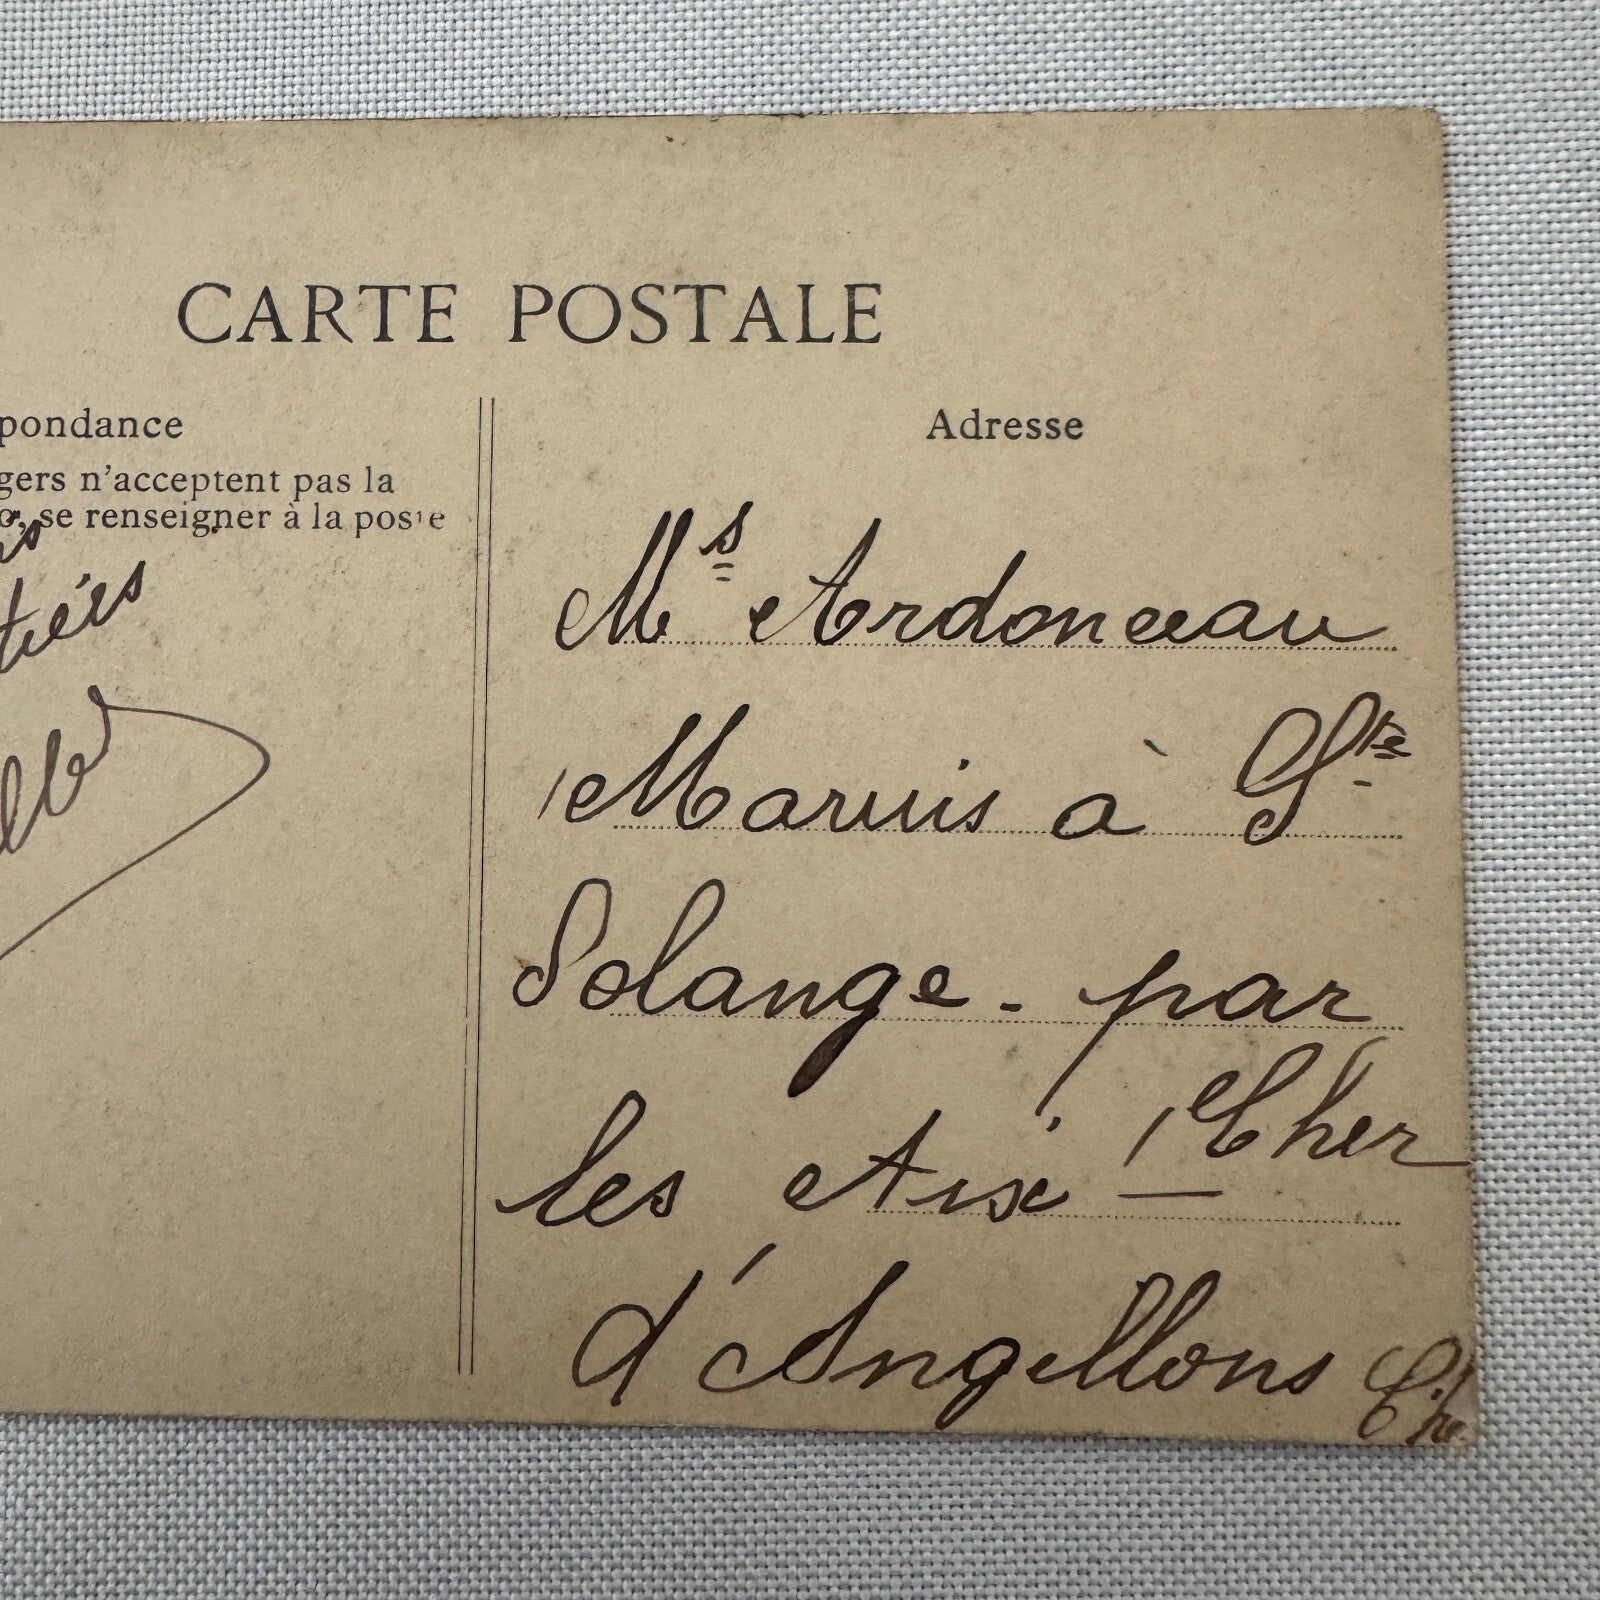 CARTE POSTALE
pondance
gers n'acceptent pas la
se renseigner à la poste
Adresse
Ms Ardonceau
à Ste
Solange - par
les Aix Cher
d'Angellons Cher